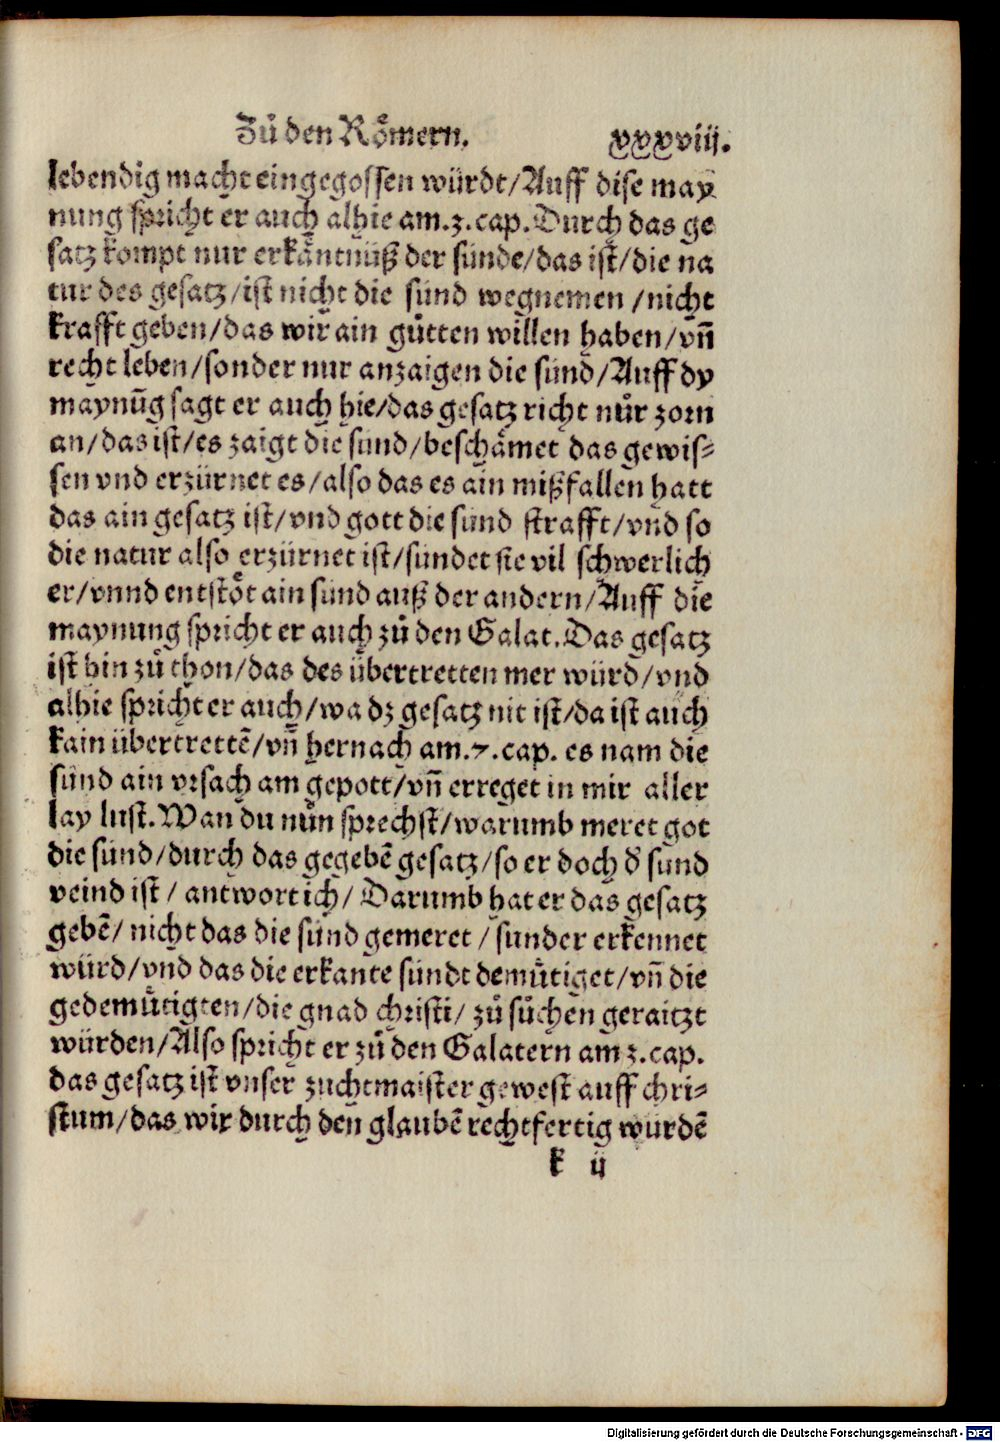 Zů den Rőmern.
xxxviij.
lebendig macht eingegossen würdt/Auff dise may
nung spricht er auch alhie am.3.cap.Durch das ge
satz kompt nur erkäntnüß der sünde/das ist/die na
tur des gesatz/ist nicht die sünd wegnemen /nicht
krafft geben/das wir ain gůtten willen haben/vñ
recht leben/sonder nur anzaigen die sünd/Auff dy
maynũg sagt er auch hie/das gesatz richt nůr zorn
an/das ist/es zaigt die sünd/beschämet das gewis-
sen vnd erzürnet es/also das es ain mißfallen hatt
das ain gesatz ist/vnd gott die sünd strafft/vnd so
die natur also erzürnet ist/sündet sie vil schwerlich
er/vnnd entstőt ain sünd auß der andern/Auff die
maynung spricht er auch zů den Galat.Das gesatz
ist hin zů thon/das des übertretten mer würd/vnd
alhie spricht er auch/wa dz gesatz nit ist/da ist auch
kain übertrettẽ/vñ hernach am.7.cap. es nam die
sünd ain vrsach am gepott/vñ erreget in mir aller
lay lust.Wan du nůn sprechst/warumb meret got
die sünd/durch das gegebẽ gesatz/so er doch d̕ sünd
veind ist/ antwort ich/ Darumb hat er das gesatz
gebẽ/ nicht das die sünd gemeret /sunder erkennet
würd/vnd das die erkante sündt demůtiget/vñ die
gedemůtigten/die gnad christi/ zů sůchen geraitzt
würden/Also spricht er zů den Galatern am 3.cap.
das gesatz ist vnser zuchtmaister gewest auff chri-
stum/das wir durch den glaubẽ rechtfertig wurdẽ
k ij
Digitalisierung gefördert durch die Deutsche Forschungsgemeinschaft - DFG